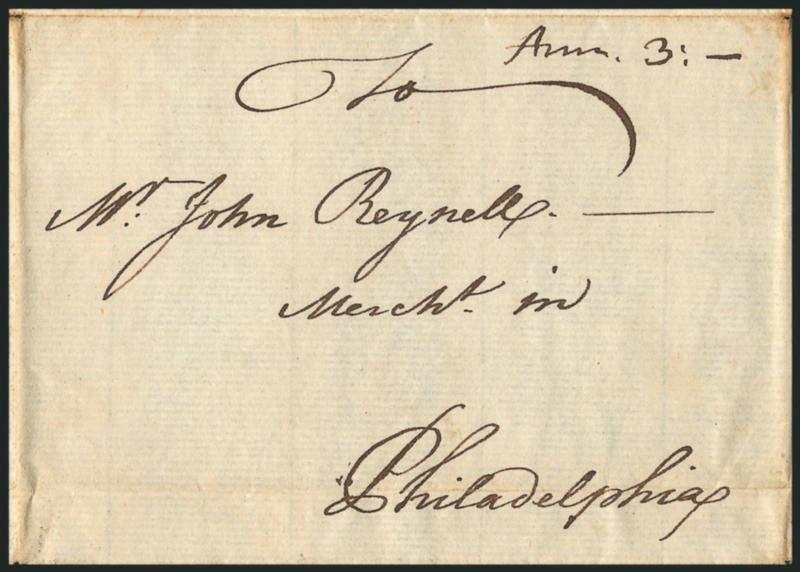 Ann. 3:—
To
Mr. John Reynell. —
Mercht. in
Philadelphia